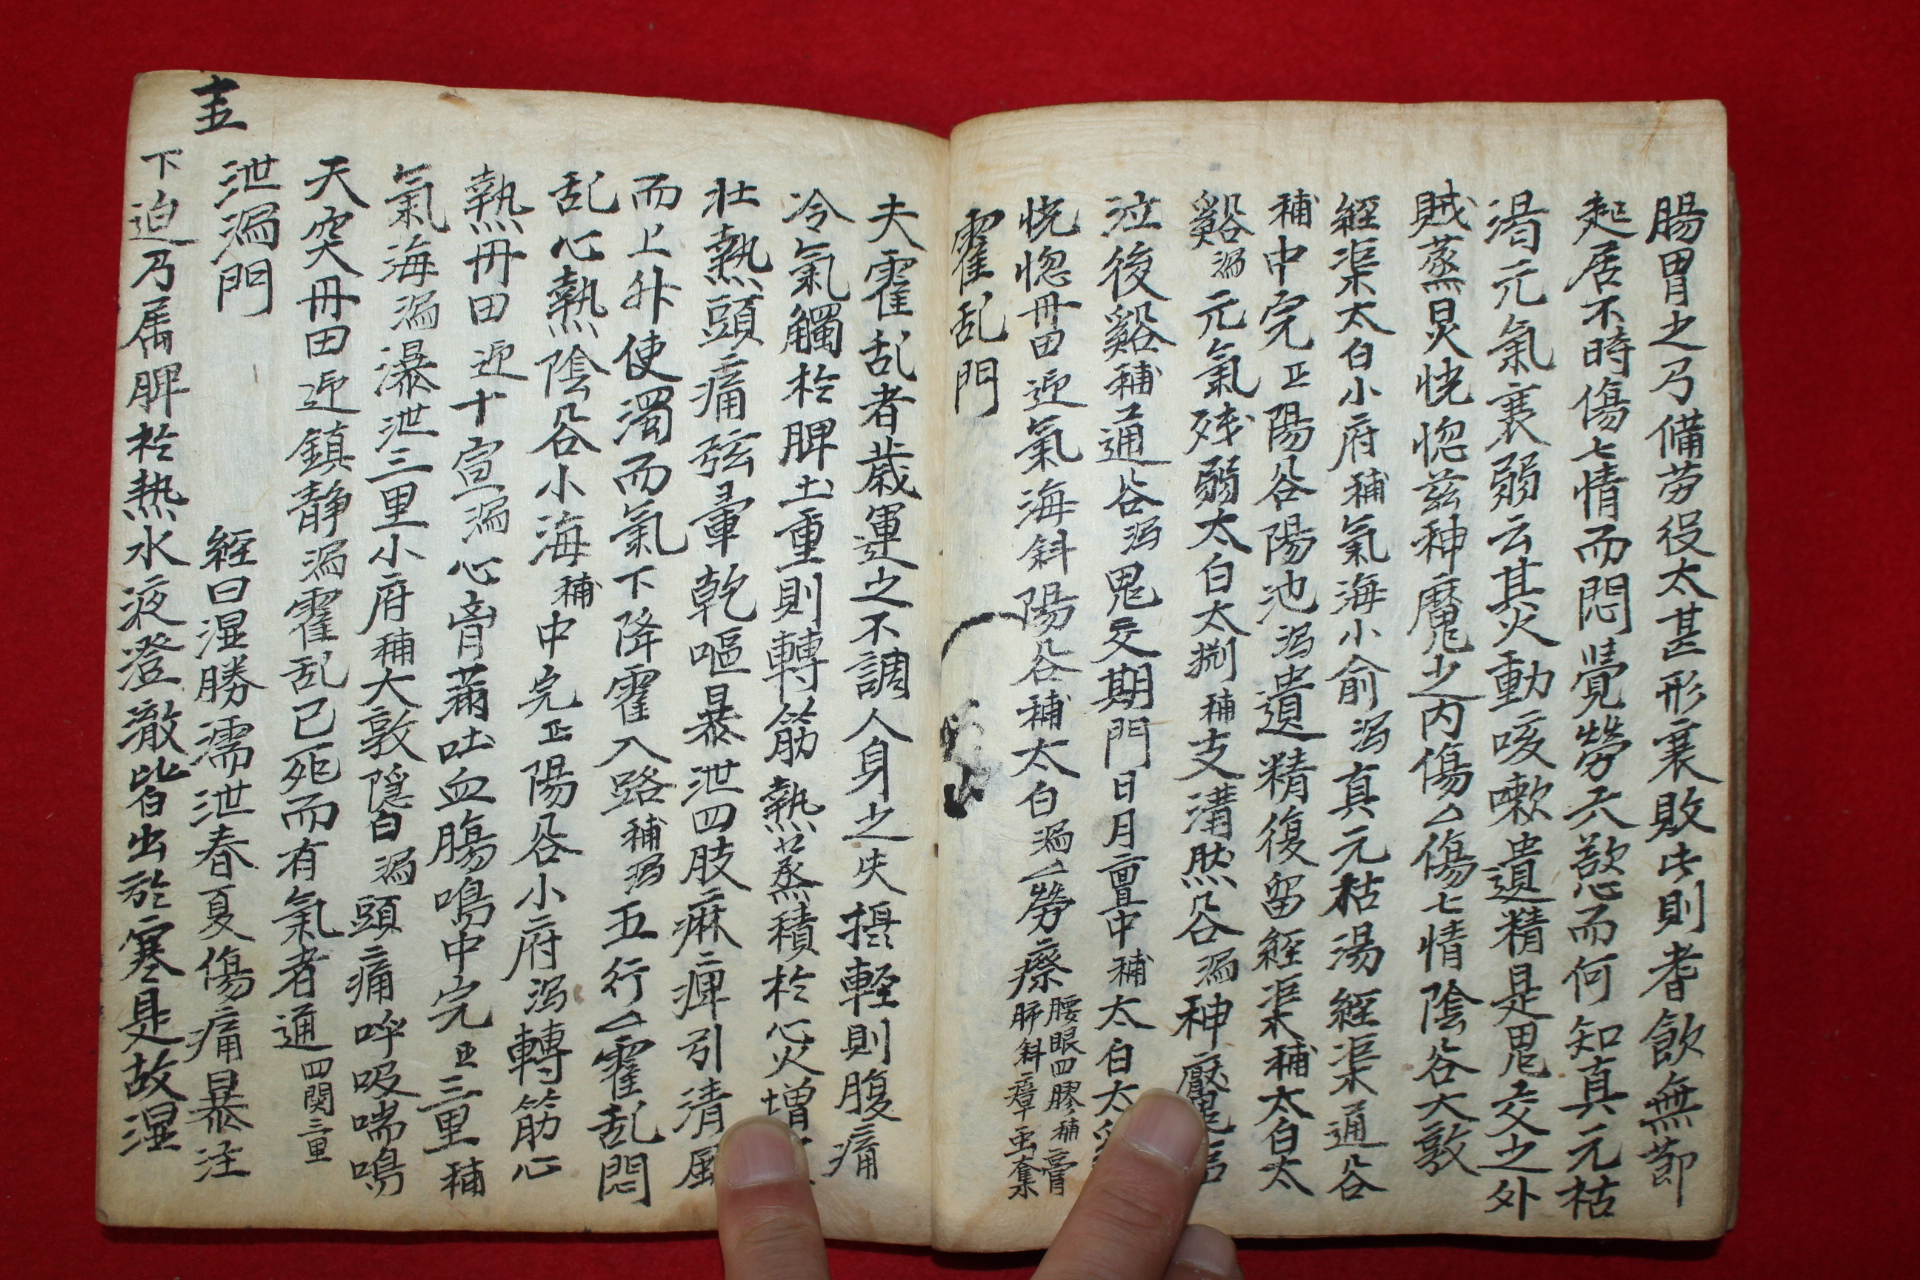 腸胃之乃備劳役太甚形衰敗此則耆飮無節
起居不時傷七情而悶覺勞六慾而何知真元枯
渴元氣衰弱云其火動咳嗽遺精是鬼交之外
賊蒸炅恍惚兹神魔之内傷△傷七情陰谷大敦
經渠太白小府補氣海小俞瀉真元枯湯經渠通谷
補中完正陽谷陽池瀉遺精復留經渠補太白太
谿瀉元氣残弱太白太補支溝然谷瀉神
泣後谿補通谷瀉鬼交期門日月亶中補太白太
恍惚冊田迎氣海斜陽谷補太白瀉△勞瘵腰眼四膠補膏
肺斜瘴虫奪
霍乱門
夫霍乱者歲運之不調人身之失攝輕則腹痛
冷氣觸於脾土重則轉筋熱蒸積於心火增
壮熱頭痛弦暈乾嘔暴泄四肢麻痺引清
而上升使濁而氣下降霍入路補瀉五行△霍乱悶
乱心熱陰谷小海補中完正陽谷小府瀉轉筋心
熱冊田迎十宣瀉心膏滿吐血腸鳴中完正三里補
氣海瀉瀑泄三里小府補大敦隠白瀉頭痛呼吸喘鳴
天突冊田迎鎮静瀉霍乱已死而有氣者通四関三重
泄瀉門　經曰湿勝濡泄春夏傷痛暴注
下迫乃属脾於熱水液澄澈皆出於寒是故湿